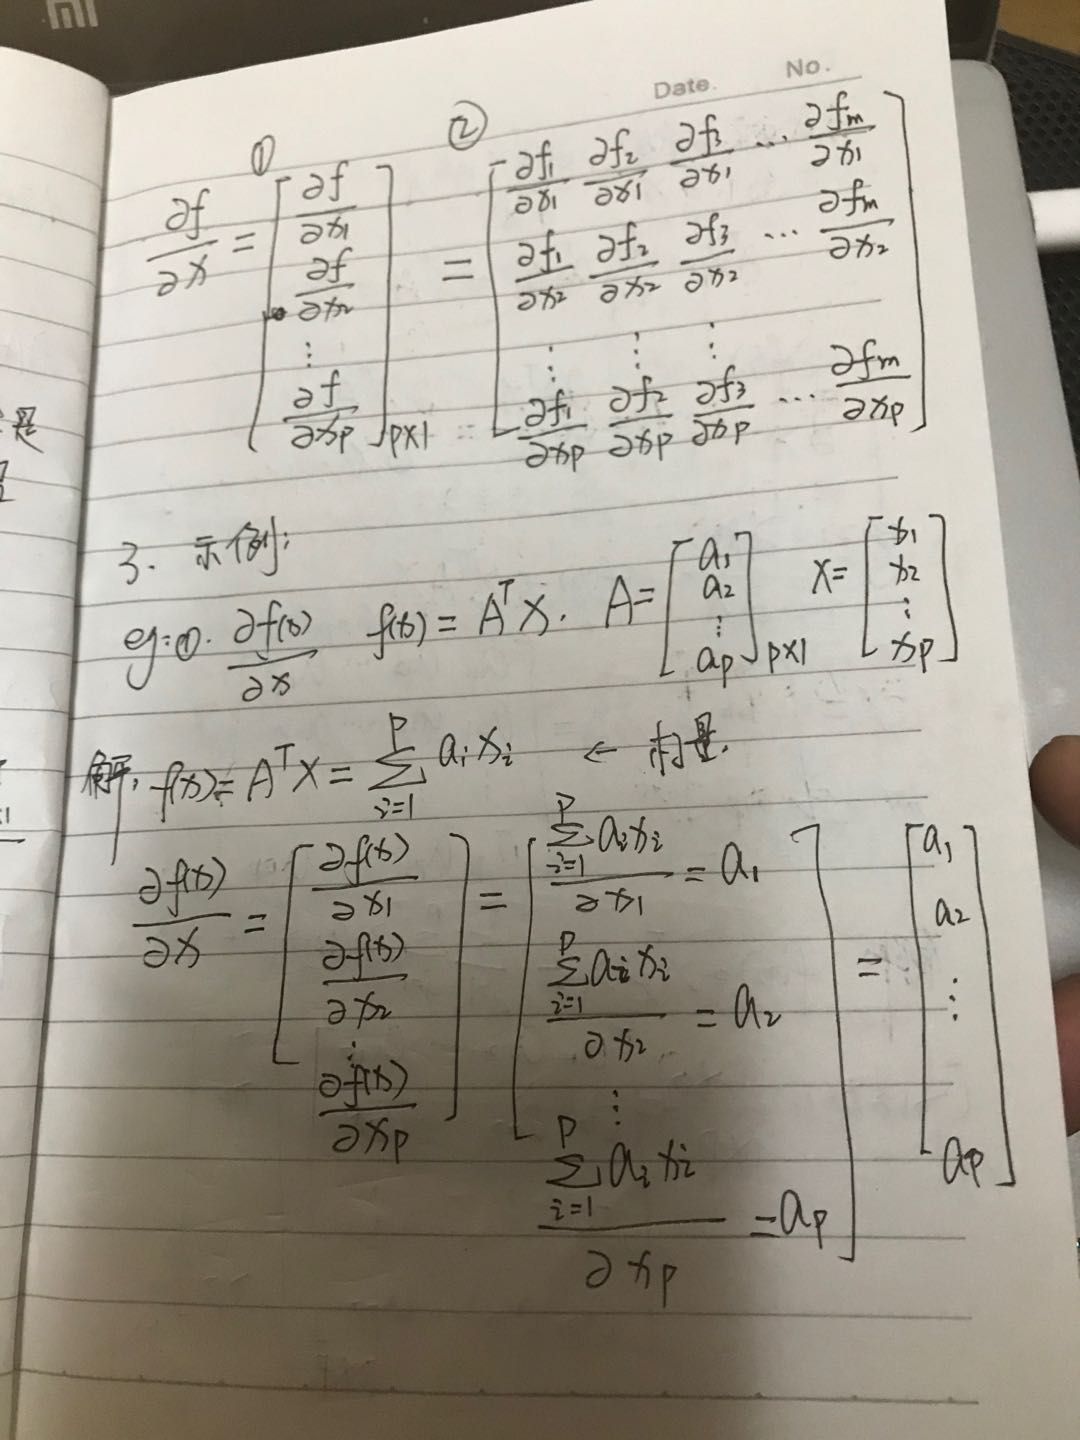 mi
Date. No.
① ②
∂f/∂X = [∂f/∂x₁ ∂f/∂x₂ ⋮ ∂f/∂xₚ]p×1 = [∂f₁/∂x₁ ∂f₂/∂x₁ ∂f₃/∂x₁ ⋯ ∂fₘ/∂x₁
∂f₁/∂x₂ ∂f₂/∂x₂ ∂f₃/∂x₂ ⋯ ∂fₘ/∂x₂
⋮ ⋮ ⋮
∂f₁/∂xₚ ∂f₂/∂xₚ ∂f₃/∂xₚ ⋯ ∂fₘ/∂xₚ]
3. 示例:
eg:①. ∂f(x)/∂x f(x) = AᵀX. A = [a₁ a₂ ⋮ aₚ]p×1 X = [x₁ x₂ ⋮ xₚ]
解, f(x) = AᵀX = ∑ᵢ₌₁ᴾ aᵢxᵢ ← 标量.
∂f(x)/∂X = [∂f(x)/∂x₁ ∂f(x)/∂x₂ ⋮ ∂f(x)/∂xₚ] = [∑ᵢ₌₁ᴾ aᵢxᵢ/∂x₁ = a₁ ∑ᵢ₌₁ᴾ aᵢxᵢ/∂x₂ = a₂ ⋮ ∑ᵢ₌₁ᴾ aᵢxᵢ/∂xₚ = aₚ] = [a₁ a₂ ⋮ aₚ]